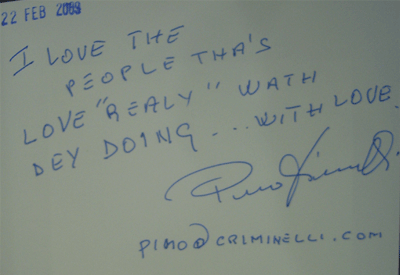 22 FEB 2009
I LOVE THE
PEOPLE THA'S
LOVE "REALY" WATH
DEY DOING... WITH LOVE.
PINO@CRIMINELLI.COM